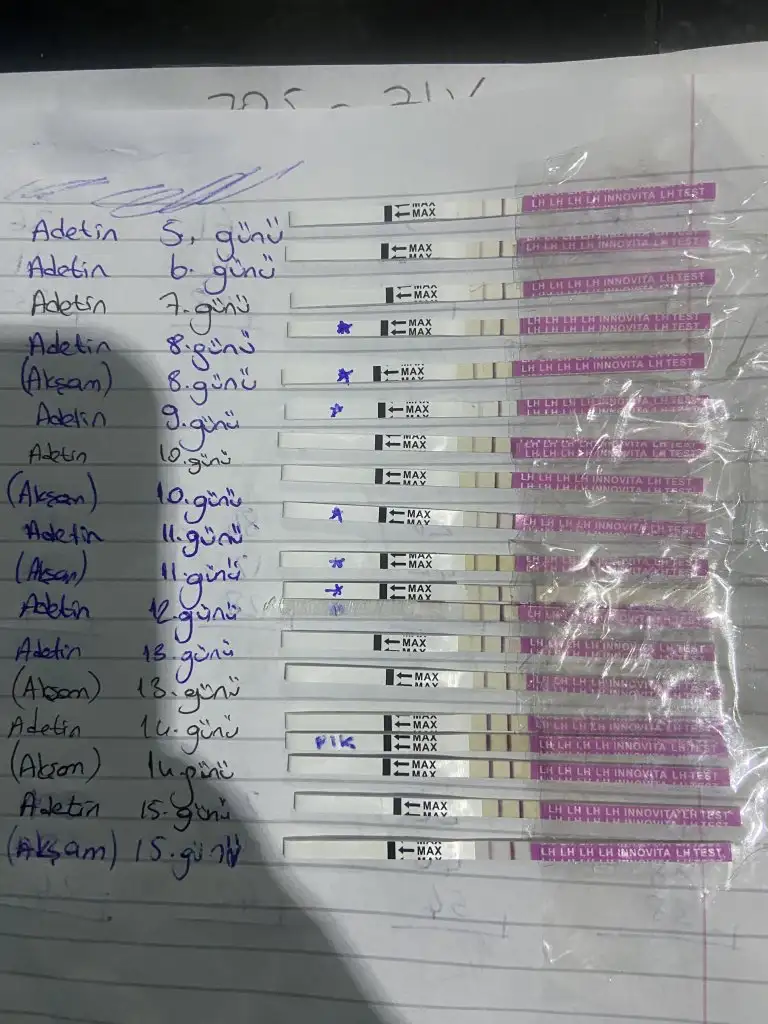 Adetin 5. günü
← MAX
LH LH LH LH INNOVITA LH TEST
Adetin 6. günü
← MAX
LH LH LH LH INNOVITA LH TEST
Adetin 7. günü
← MAX
LH LH LH LH INNOVITA LH TEST
Adetin 8. günü
← MAX
LH LH LH LH INNOVITA LH TEST
(Akşam) 8. günü
← MAX
LH LH LH LH INNOVITA LH TEST
Adetin 9. günü
← MAX
LH LH LH LH INNOVITA LH TEST
Adetin 10. günü
← MAX
LH LH LH LH INNOVITA LH TEST
(Akşam) 10. günü
← MAX
LH LH LH LH INNOVITA LH TEST
Adetin 11. günü
← MAX
LH LH LH LH INNOVITA LH TEST
(Akşam) 11. günü
← MAX
LH LH LH LH INNOVITA LH TEST
Adetin 12. günü
← MAX
Adetin 13. günü
← MAX
LH LH LH LH INNOVITA LH TEST
(Akşam) 13. günü
← MAX
LH LH LH LH INNOVITA LH TEST
Adetin 14. günü
← MAX
LH LH LH LH INNOVITA LH TEST
PIK
← MAX
LH LH LH LH INNOVITA LH TEST
(Akşam) 14. günü
← MAX
LH LH LH LH INNOVITA LH TEST
Adetin 15. günü
← MAX
LH LH LH LH INNOVITA LH TEST
(Akşam) 15. günü
← MAX
LH LH LH LH INNOVITA LH TEST